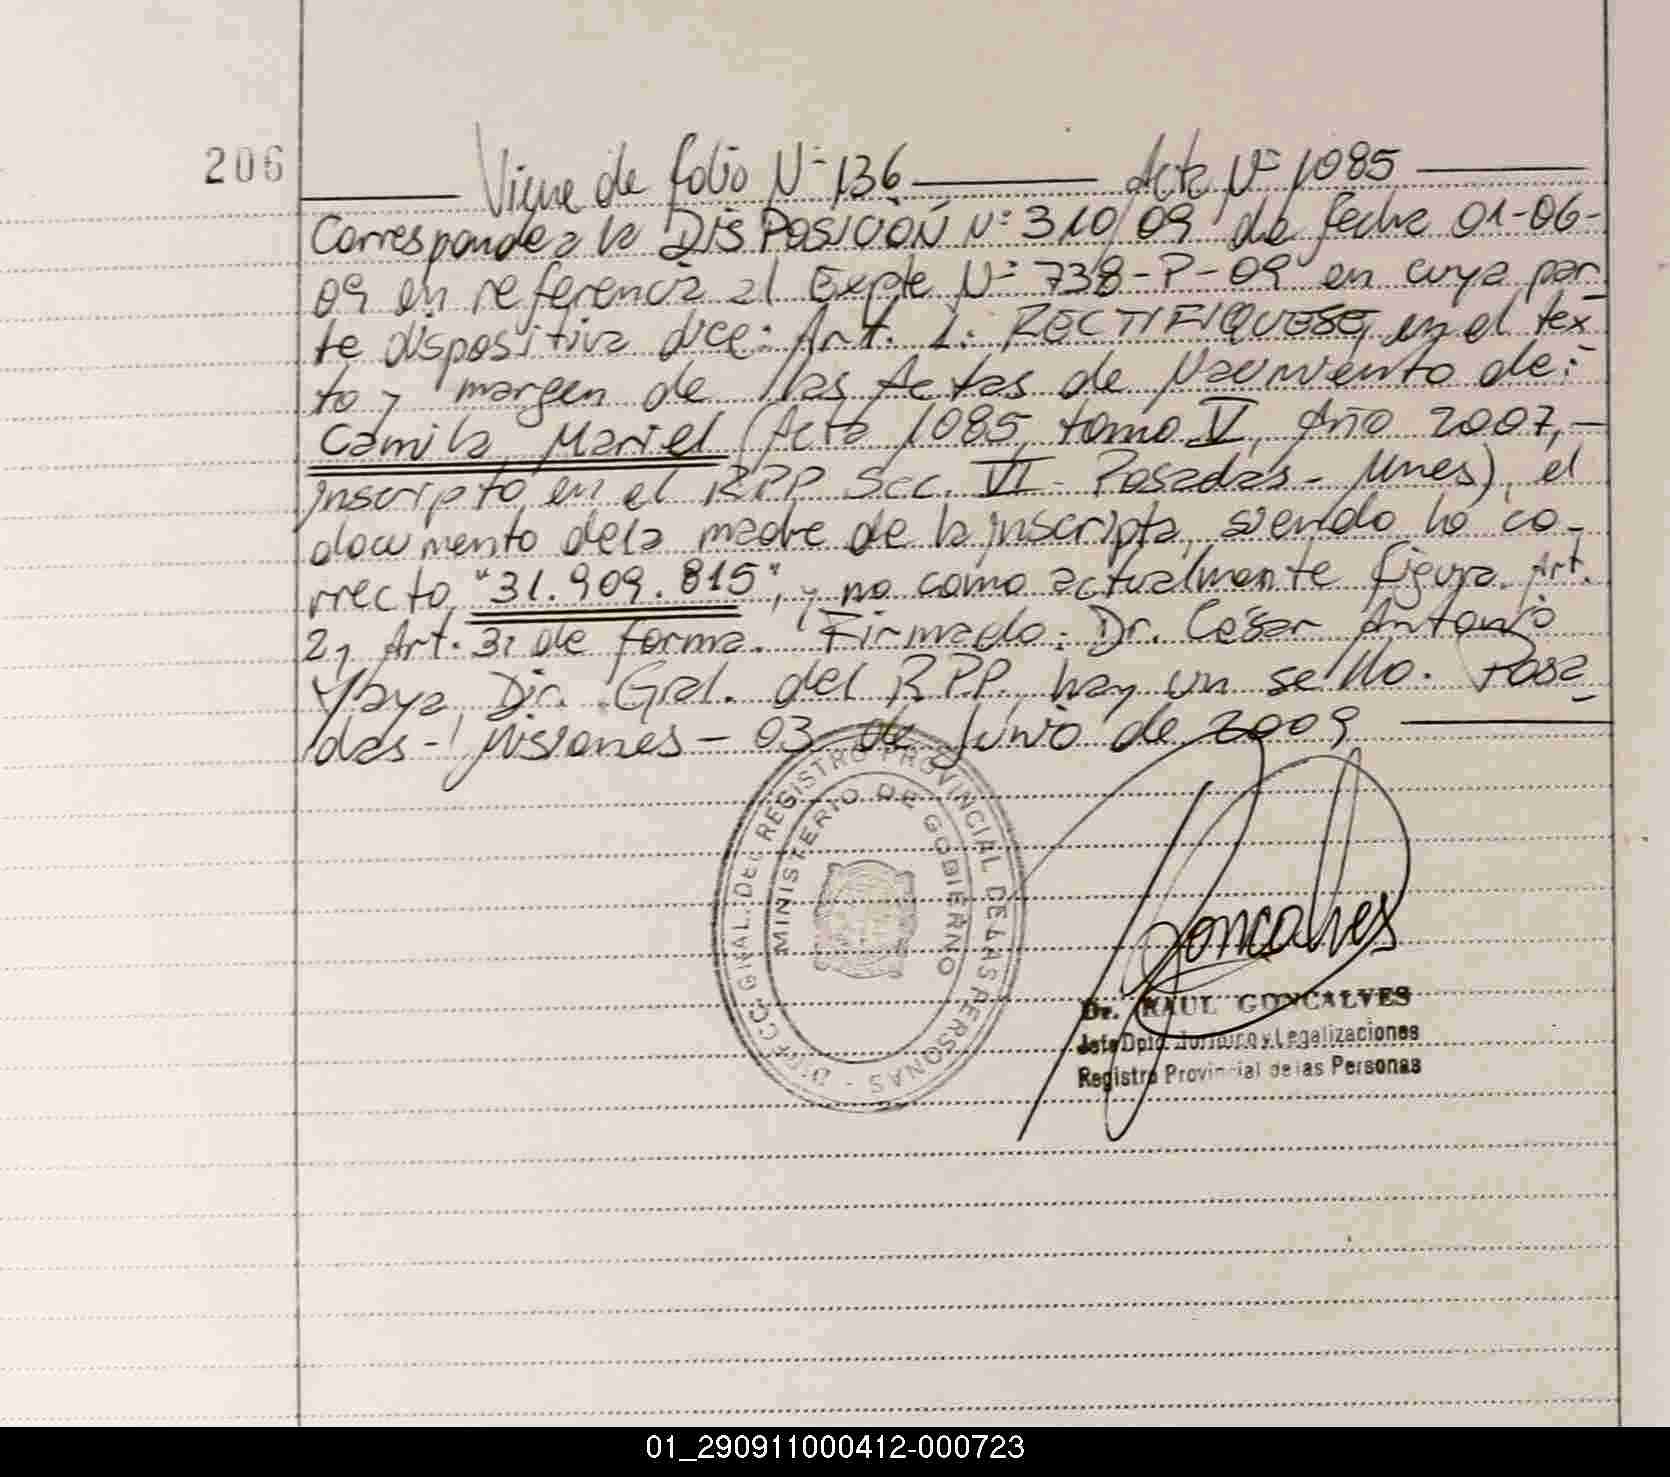 206
Viene de folio Nº 136 Acta Nº 1085
Corresponde a la DISPOSICIÓN Nº 310/09 de fecha 01-06-
09 en referencia al Expte Nº 738-P-09 en cuya par
te dispositiva dice: Art. 1: RECTIFIQUESE, en el tex
to y margen de las Actas de Nacimiento de:
Camila Mariel (Acta 1085, tomo V, Año 2007,-
inscripto en el RPP Sec. VI - Posadas - Mnes), el
documento de la madre de la inscripta, siendo lo co-
rrecto "31.909.815", y no como actualmente figura. Art.
2, Art. 3: de forma. Firmado: Dr. César Antonio
Yaya, Dir. Gral. del RPP, hay un sello. Posa
das - Misiones - 03 de Junio de 2009
REGISTRO PROVINCIAL DE LAS PERSONAS
MINISTERIO DE GOBIERNO
Goncalves
Dr. RAUL GONCALVES
Jefe Dpto. Jurídico y Legalizaciones
Registro Provincial de las Personas
01_290911000412-000723